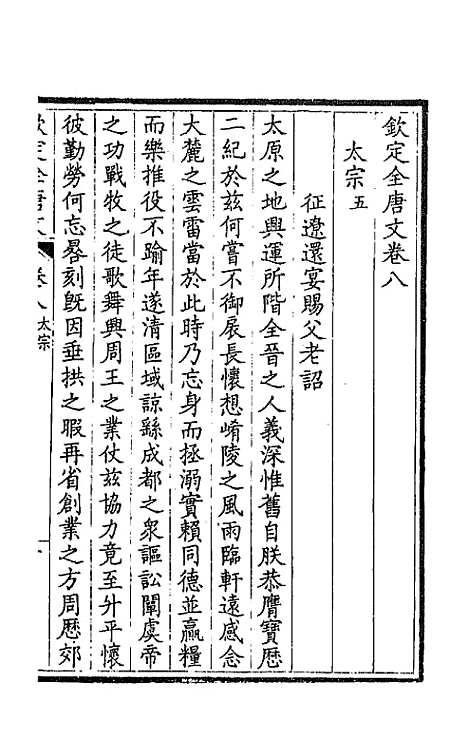 欽定全唐文卷八
太宗五
征遼還宴賜父老詔
太原之地興運所階全晉之人義深惟舊自朕恭膺寶厯
二紀於兹何嘗不御扆長懷想崤陵之風雨臨軒遠感念
大麓之雲雷當於此時乃忘身而拯溺實賴同德並贏糧
而樂推役不踰年遂清區域諒繇成都之衆謳訟闡虞帝
之功戰牧之徒歌舞興周王之業仗兹協力竟至升平懷
彼勤勞何忘晷刻旣因垂拱之暇再省創業之方周厯郊
欽定全唐文 卷八 太宗 一